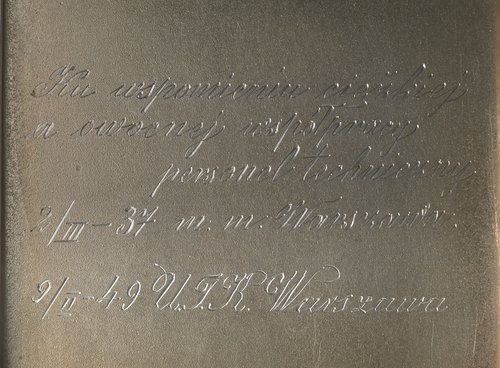 Ku wspomnieniu ciężkiej
a owocnej współpracy
personel techniczny
2/III-37 m. m. Warszawa.
9/II-49 U.T.K. Warszawa